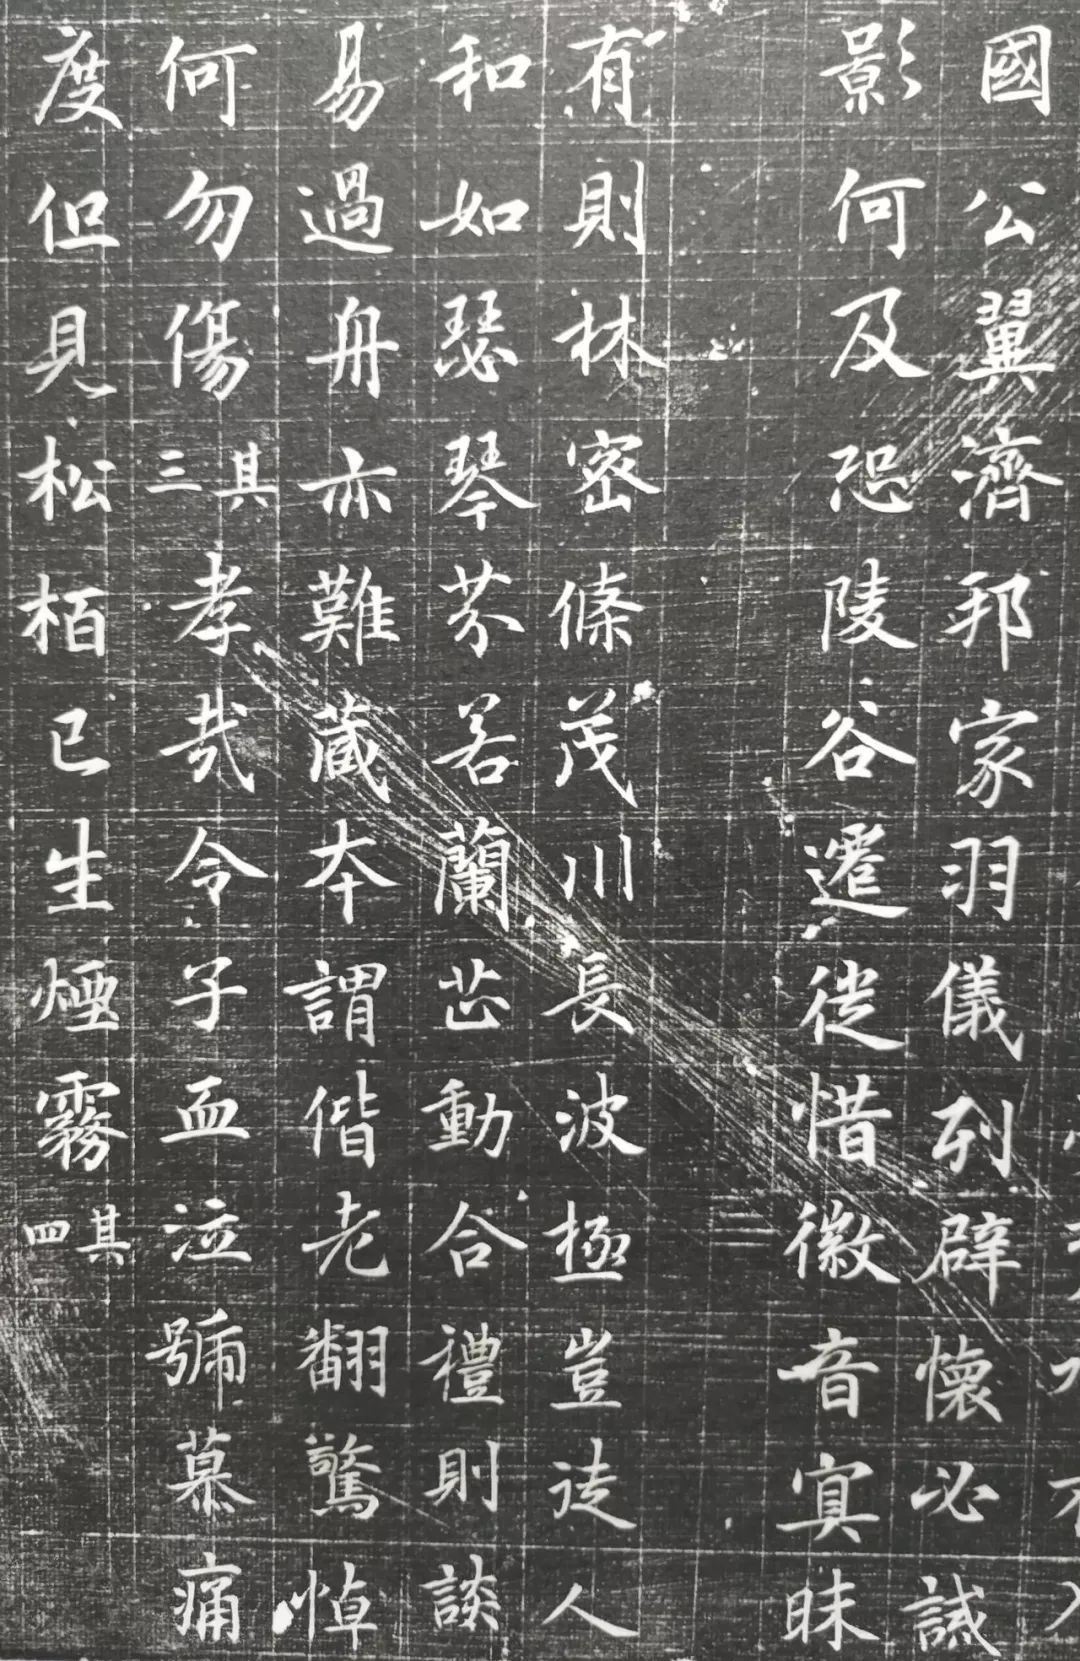 國公翼濟邦家羽儀列辟懷必誠
影何及恐陵谷遷徙惜徽音寘昧
有則林密條茂川長波極豈徒人
和如瑟琴芬若蘭芷動合禮則談
易過舟亦難藏本謂偕老翻驚悼
何勿傷其三孝哉令子血泣號慕痛
度但見松栢已生煙霧其四